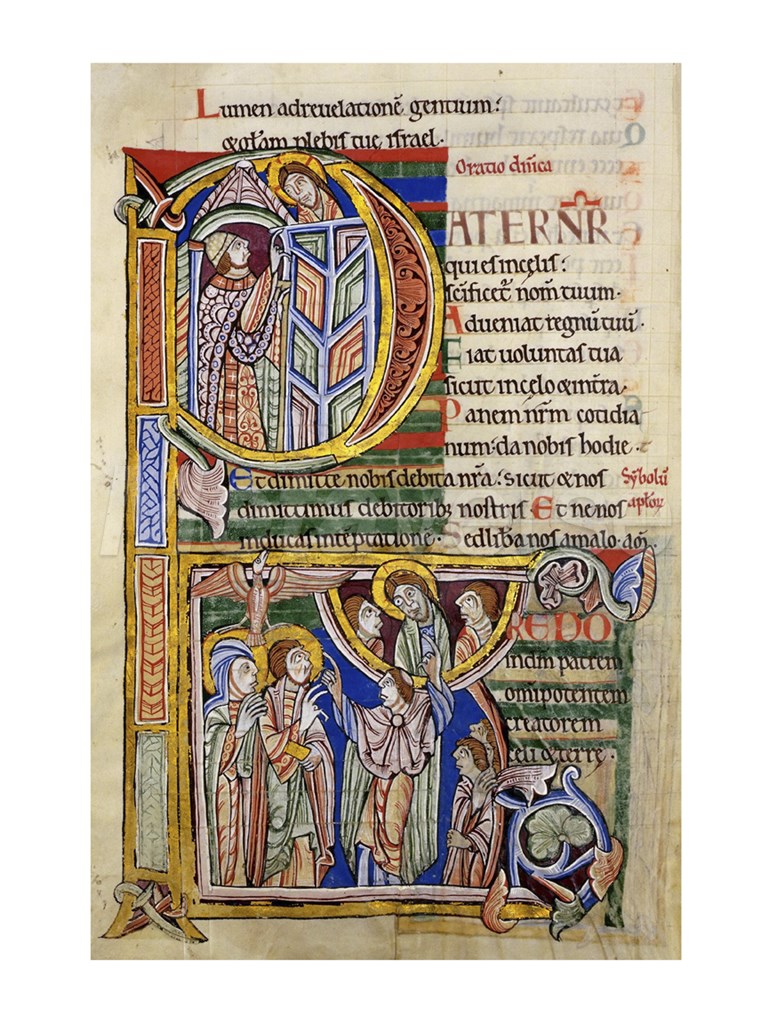 Lumen ad reuelationē gentium:
& głam plebis tue, israel.
Oratio dn̄ica
PATER NR̄
qui es in celis:
sc̄ificet̄ nom̄ tuum.
Adueniat regnū tuū.
Fiat uoluntas tua
sicut in celo & in tr̄a.
Panem nr̄m cotidia
num: da nobis hodie.
Et dimitte nobis debita nr̄a: sicut & nos
Sȳbolū
dimittimus debitorib; nostris Et ne nos
apl̄oꝝ
inducas in tēptationē. Sed lib̄a nos a malo.
CREDO
in dm̄ patrem
om̄ipotentem
creatorem
celi & terre.